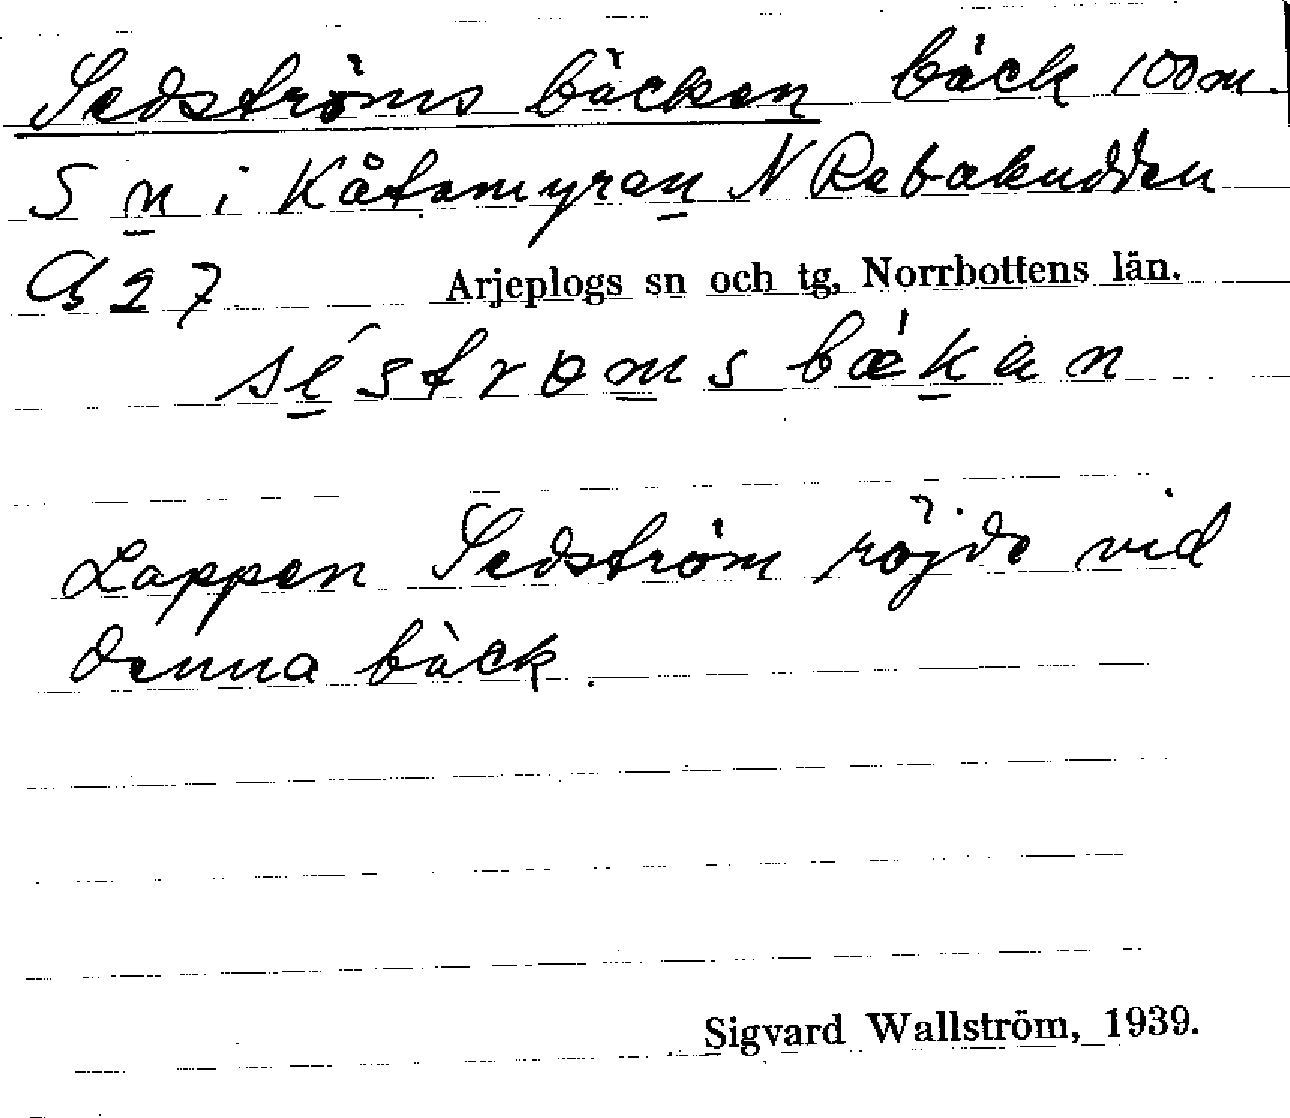 Sedströms bäcken bäck 100 m.
S n i Kåtamyran N Rebakudden
27 Arjeplogs sn och tg, Norrbottens län.
séstrøms bǽkan
Lappen Sedström röjde vid
denna bäck.
Sigvard Wallström, 1939.